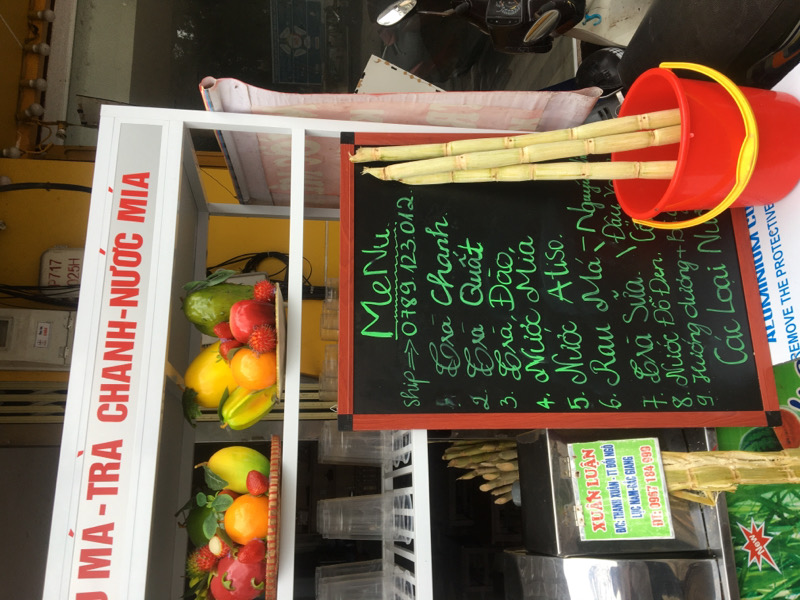 MÁ - TRÀ CHANH - NƯỚC MÍA
P717
025H
MeNu
Ship ⇒ 0789.123.012
1 Trà Chanh
2. Trà Quất
3. Trà Đào
4. Nước Mía
5. Nước Atiso.
6. Rau Má -
Đậu
7 Trà Sữa.
8. Nước Đỗ Đen.
9. Hướng dương +
Các Loại
XUÂN LUẬN
Đ/C: THANH XUÂN - TT ĐỒI NGÔ
LỤC NAM - BẮC GIANG
ĐT: 0987 184 990
New
ALUMINIUM
REMOVE THE PROTECTIVE